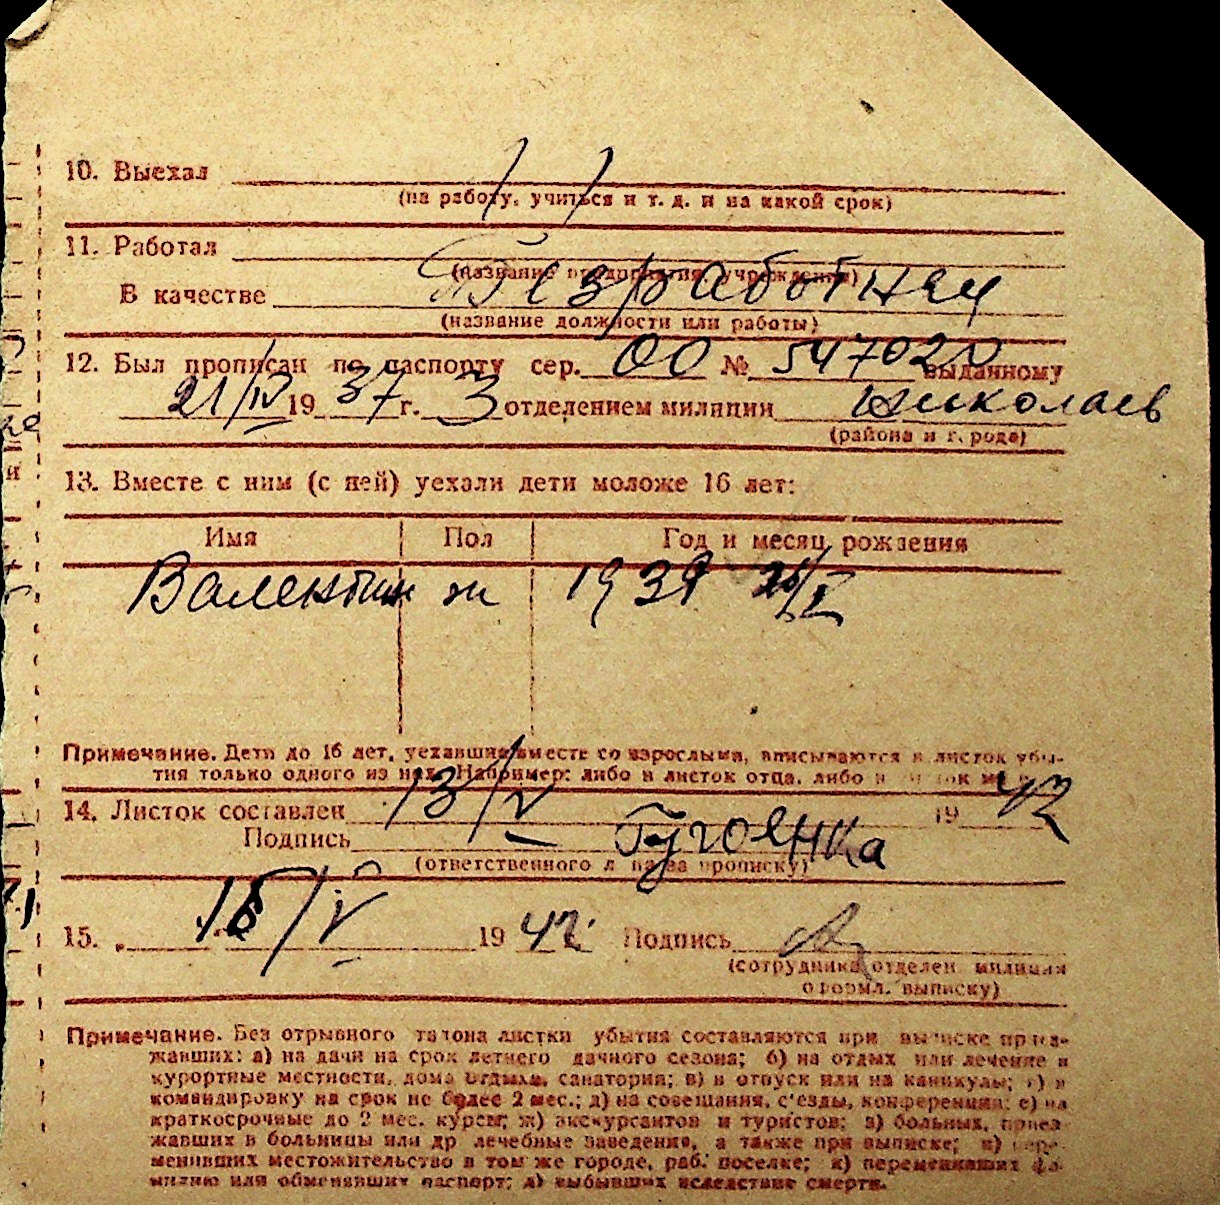 10. Выехал
(на работу, учиться и т. д. и на какой срок)
11. Работал
(название предприятия, учреждения)
В качестве
(название должности или работы)
12. Был прописан по паспорту сер. ОО № 547020 выданному
21/IV 19 37 г. 3 отделением милиции Николаев
(района и города)
13. Вместе с ним (с ней) уехали дети моложе 16 лет:
Имя Пол Год и месяц рождения
Валентин ж 1939
Примечание. Дети до 16 лет, уехавшие вместе со взрослыми, вписываются в листок убы-
тия только одного из них. Например: либо в листок отца, либо в листок
14. Листок составлен 13/V 19 42
Подпись
(ответственного за прописку)
15. „ 15/V 19 42 Подпись
(сотрудника отделен. милиции
оформл. выписку)
Примечание. Без отрывного талона листки убытия составляются при выписке приез-
жавших: а) на дачи на срок летнего дачного сезона; б) на отдых или лечение в
курортные местности, дома отдыха, санатории; в) в отпуск или на каникулы; г) в
командировку на срок не более 2 мес.; д) на совещания, с'езды, конференции; е) на
краткосрочные до 2 мес. курсы; ж) экскурсантов и туристов; з) больных, приез-
жавших в больницы или др лечебные заведения, а также при выписке; и) пере-
менивших местожительство в том же городе, раб. поселке; к) переменивших фа-
милию или обменявших паспорт; л) выбывших вследствие смерти.